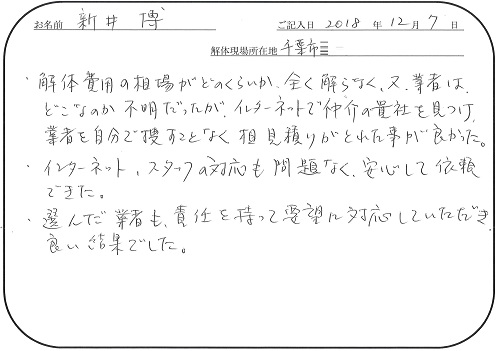 お名前 新井 博 ご記入日 2018 年 12 月 7 日
解体現場所在地 千葉市
・解体費用の相場がどのくらいか、全く解らなく、又、業者は、
どこなのか不明だったが、インターネットで仲介の貴社を見つけ、
業者を自分で捜すことなく相見積りがとれた事が良かった。
・インターネット、スタッフの対応も問題なく、安心して依頼
できた。
・選んだ業者も、責任を持って要望に対応していただき
良い結果でした。